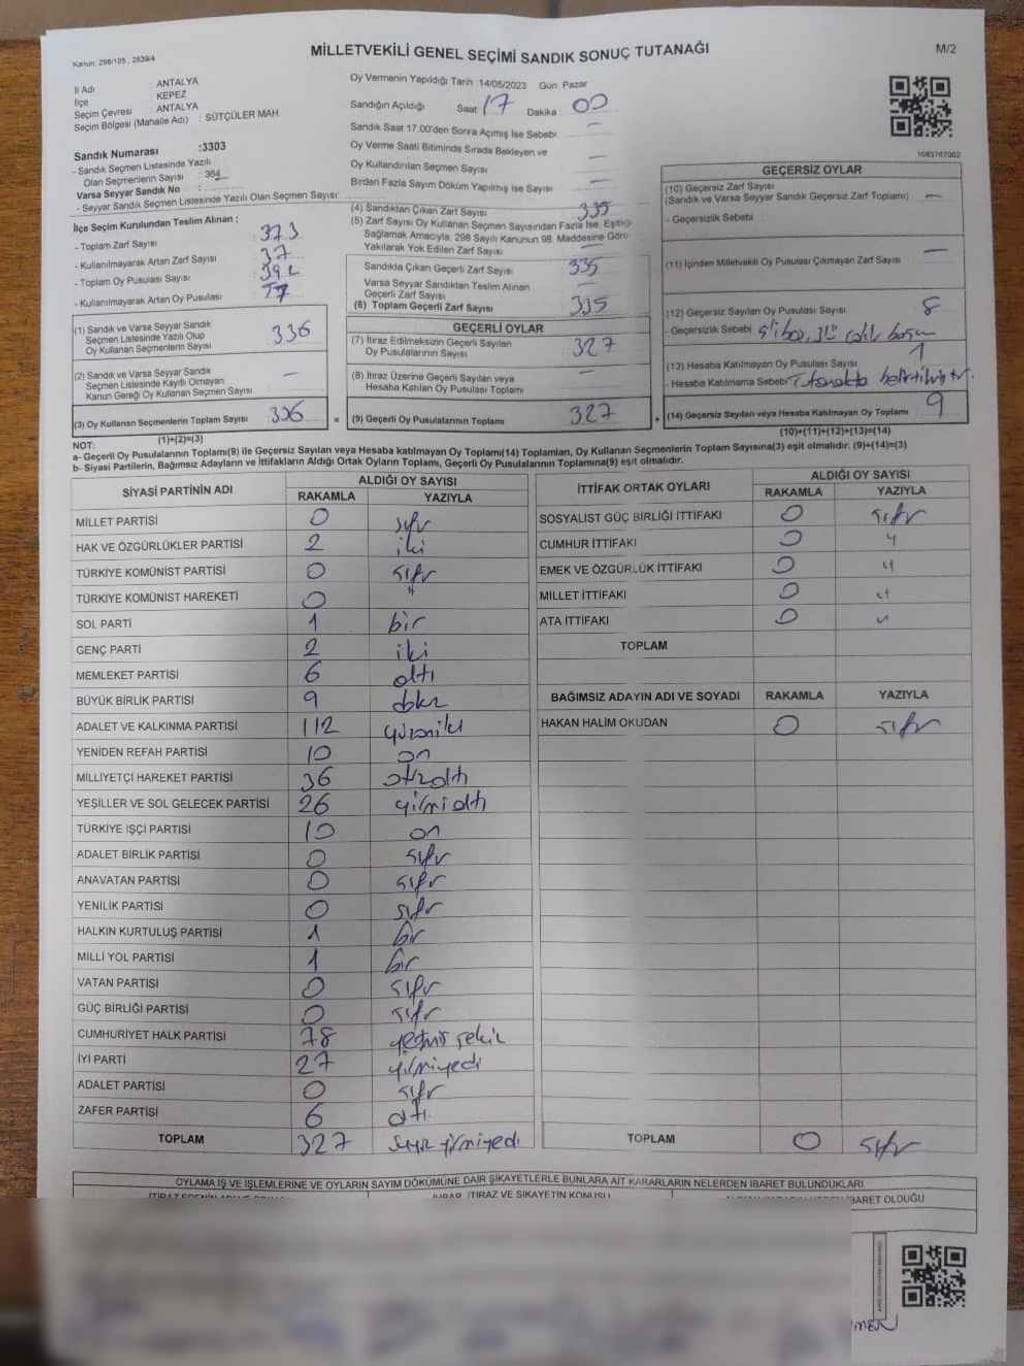 Kanun: 298/105 , 2839/4
MİLLETVEKİLİ GENEL SEÇİMİ SANDIK SONUÇ TUTANAĞI
M/2
İl Adı ANTALYA
İlçe KEPEZ
Seçim Çevresi ANTALYA
Seçim Bölgesi (Mahalle Adı) : SÜTÇÜLER MAH
Sandık Numarası :3303
- Sandık Seçmen Listesinde Yazılı
Olan Seçmenlerin Sayısı : 364
Varsa Seyyar Sandık No :
- Seyyar Sandık Seçmen Listesinde Yazılı Olan Seçmen Sayısı :
İlçe Seçim Kurulundan Teslim Alınan :
- Toplam Zarf Sayısı 373
- Kullanılmayarak Artan Zarf Sayısı 37
- Toplam Oy Pusulası Sayısı
- Kullanılmayarak Artan Oy Pusulası
(1) Sandık ve Varsa Seyyar Sandık
Seçmen Listesinde Yazılı Olup
Oy Kullanan Seçmenlerin Sayısı 336
(2) Sandık ve Varsa Seyyar Sandık
Seçmen Listesinde Kayıtlı Olmayan
Kanun Gereği Oy Kullanan Seçmen Sayısı —
(3) Oy Kullanan Seçmenlerin Toplam Sayısı 336
(1)+(2)=(3)
Oy Vermenin Yapıldığı Tarih :14/05/2023 Gün: Pazar
Sandığın Açıldığı Saat: 17 Dakika : 00
Sandık Saat 17.00'den Sonra Açılmış İse Sebebi —
Oy Verme Saati Bitiminde Sırada Bekleyen ve
Oy Kullandırılan Seçmen Sayısı —
Birden Fazla Sayım Döküm Yapılmış İse Sayısı —
(4) Sandıktan Çıkan Zarf Sayısı 335
(5) Zarf Sayısı Oy Kullanan Seçmen Sayısından Fazla İse, Eşitliği
Sağlamak Amacıyla, 298 Sayılı Kanunun 98. Maddesine Göre
Yakılarak Yok Edilen Zarf Sayısı —
Sandıkta Çıkan Geçerli Zarf Sayısı 335
Varsa Seyyar Sandıktan Teslim Alınan
Geçerli Zarf Sayısı —
(6) Toplam Geçerli Zarf Sayısı 335
GEÇERLİ OYLAR
(7) İtiraz Edilmeksizin Geçerli Sayılan
Oy Pusulalarının Sayısı 327
(8) İtiraz Üzerine Geçerli Sayılan veya
Hesaba Katılan Oy Pusulası Toplamı —
= (9) Geçerli Oy Pusulalarının Toplamı 327 +
1083767002
GEÇERSİZ OYLAR
(10) Geçersiz Zarf Sayısı
(Sandık ve Varsa Seyyar Sandık Geçersiz Zarf Toplamı) —
- Geçersizlik Sebebi
(11) İçinden Milletvekili Oy Pusulası Çıkmayan Zarf Sayısı —
(12) Geçersiz Sayılan Oy Pusulası Sayısı 8
- Geçersizlik Sebebi
(13) Hesaba Katılmayan Oy Pusulası Sayısı 1
- Hesaba Katılmama Sebebi Tutanakta belirtilmiştir.
(14) Geçersiz Sayılan veya Hesaba Katılmayan Oy Toplamı 9
(10)+(11)+(12)+(13)=(14)
NOT:
a- Geçerli Oy Pusulalarının Toplamı(9) ile Geçersiz Sayılan veya Hesaba katılmayan Oy Toplamı(14) Toplamları, Oy Kullanan Seçmenlerin Toplam Sayısına(3) eşit olmalıdır. (9)+(14)=(3)
b- Siyasi Partilerin, Bağımsız Adayların ve İttifakların Aldığı Ortak Oyların Toplamı, Geçerli Oy Pusulalarının Toplamına(9) eşit olmalıdır.
SİYASİ PARTİNİN ADI ALDIĞI OY SAYISI
RAKAMLA YAZIYLA
MİLLET PARTİSİ 0 sıfır
HAK VE ÖZGÜRLÜKLER PARTİSİ 2 iki
TÜRKİYE KOMÜNİST PARTİSİ 0 sıfır
TÜRKİYE KOMÜNİST HAREKETİ 0 "
SOL PARTİ 1 bir
GENÇ PARTİ 2 iki
MEMLEKET PARTİSİ 6 altı
BÜYÜK BİRLİK PARTİSİ 9 dokuz
ADALET VE KALKINMA PARTİSİ 112 yüzoniki
YENİDEN REFAH PARTİSİ 10 on
MİLLİYETÇİ HAREKET PARTİSİ 36 otuzaltı
YEŞİLLER VE SOL GELECEK PARTİSİ 26 yirmialtı
TÜRKİYE İŞÇİ PARTİSİ 10 on
ADALET BİRLİK PARTİSİ 0 sıfır
ANAVATAN PARTİSİ 0 sıfır
YENİLİK PARTİSİ 0 sıfır
HALKIN KURTULUŞ PARTİSİ 1 bir
MİLLİ YOL PARTİSİ 1 bir
VATAN PARTİSİ 0 sıfır
GÜÇ BİRLİĞİ PARTİSİ 0 sıfır
CUMHURİYET HALK PARTİSİ 78 yetmiş sekiz
İYİ PARTİ 27 yirmiyedi
ADALET PARTİSİ 0 sıfır
ZAFER PARTİSİ 6 altı
TOPLAM 327 üçyüz yirmiyedi
İTTİFAK ORTAK OYLARI ALDIĞI OY SAYISI
RAKAMLA YAZIYLA
SOSYALİST GÜÇ BİRLİĞİ İTTİFAKI 0 sıfır
CUMHUR İTTİFAKI 0 "
EMEK VE ÖZGÜRLÜK İTTİFAKI 0 "
MİLLET İTTİFAKI 0 "
ATA İTTİFAKI 0 "
TOPLAM
BAĞIMSIZ ADAYIN ADI VE SOYADI RAKAMLA YAZIYLA
HAKAN HALİM OKUDAN 0 sıfır
TOPLAM 0 sıfır
OYLAMA İŞ VE İŞLEMLERİNE VE OYLARIN SAYIM DÖKÜMÜNE DAİR ŞİKAYETLERLE BUNLARA AİT KARARLARIN NELERDEN İBARET BULUNDUKLARI
İTİRAZ VE ŞİKAYETİN KONUSU
İBARET OLDUĞU